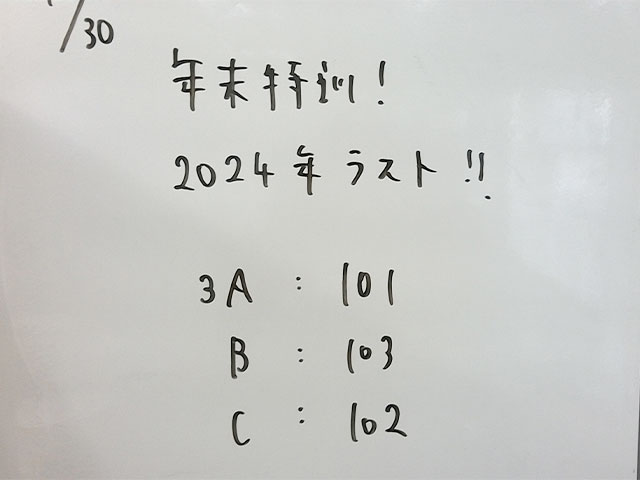 /30
年末特訓!
2024年ラスト!!
3A : 101
B : 103
C : 102